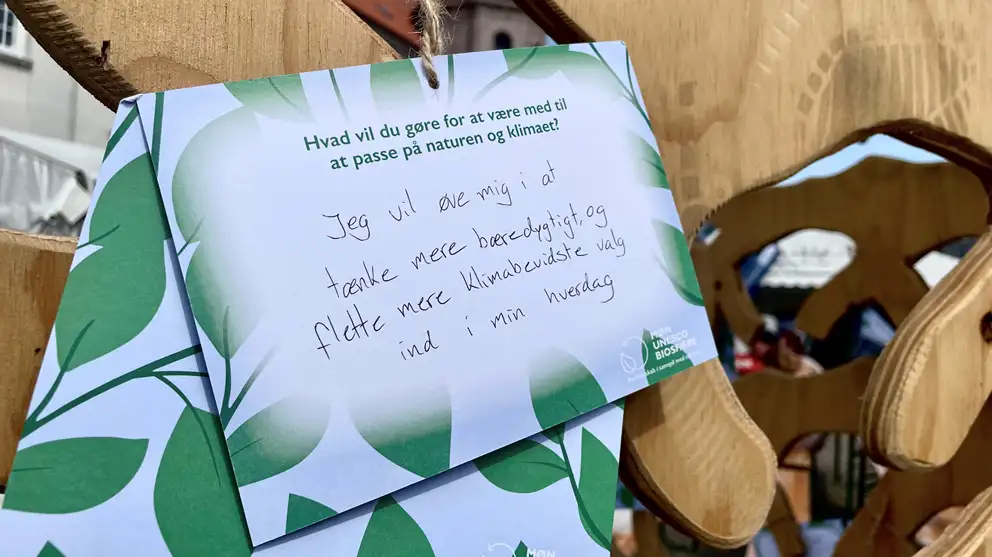 Hvad vil du gøre for at være med til
at passe på naturen og klimaet?
Jeg vil øve mig i at
tænke mere bæredygtigt, og
flette mere klimabevidste valg
ind i min hverdag
MØN
UNESCO
BIOSFÆRE
i samspil med
MØN